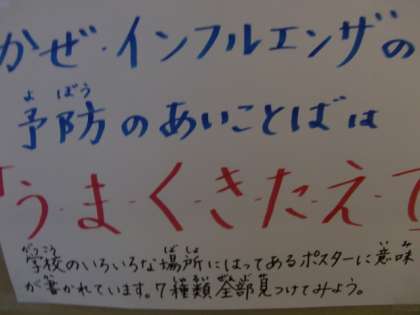 かぜ・インフルエンザの
予防のあいことばは
「う・ま・く・き・た・え・て
学校のいろいろな場所にはってあるポスターに意味
が書かれています。7種類全部見つけてみよう。